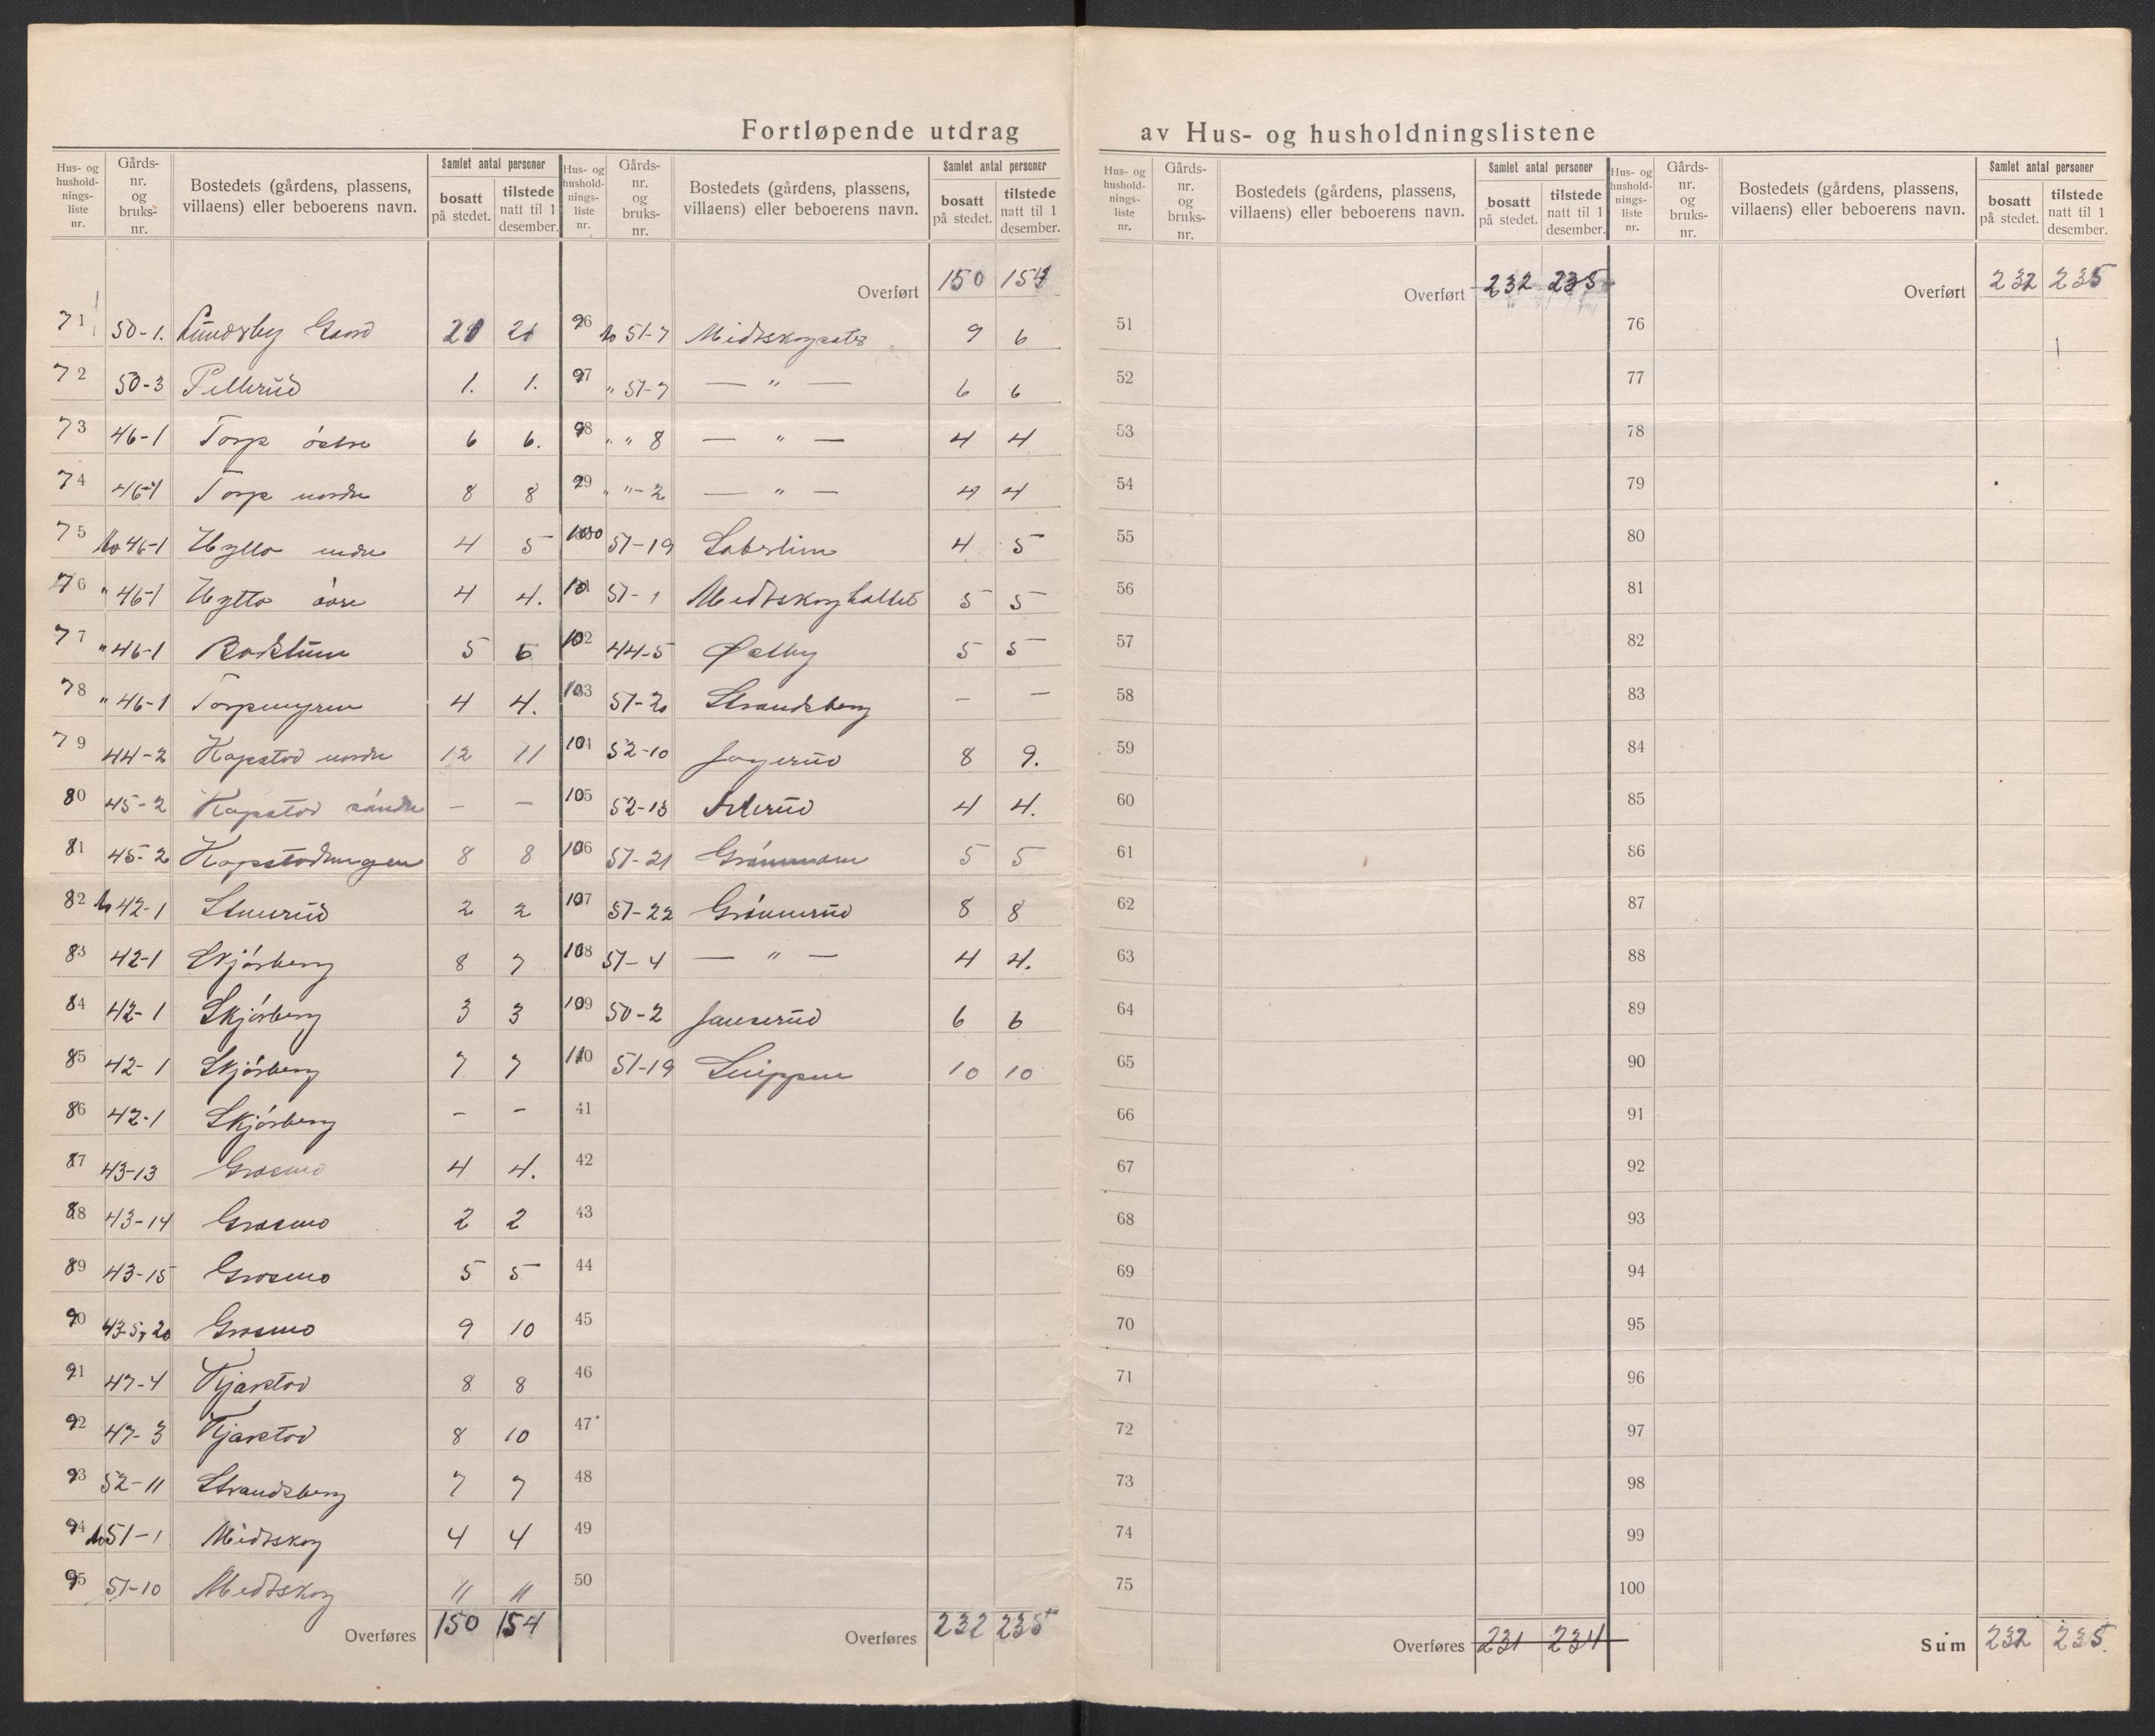 Fortløpende utdrag av Hus- og husholdningslistene
Hus- og husholdnings-liste nr. | Gårds-nr. og bruks-nr. | Bostedets (gårdens, plassens, villaens) eller beboerens navn. | Samlet antal personer bosatt på stedet. | tilstede natt til 1 desember.
71 50-1. Lundsby Gaard
72 50-3 Pellerud 1. 1.
73 46-1 Torp östre 6 6.
74 46-1 Torp nordre 8 8
75 46-1 Hytta nedre 4 5
76 " 46-1 Hytta övre 4 4.
77 " 46-1 5
78 " 46-1 Torpmyren 4 4.
79 44-2 Kapstad nordre 12 11
80 45-2 Kapstad söndre – –
81 45-2 8 8
82 42-1 Stuerud 2 2
83 42-1 Skjörberg 8 7
84 42-1 Skjörberg 3 3
85 42-1 Skjörberg 7 7
86 42-1 Skjörberg – –
87 43-13 Grasmo 4 4.
88 43-14 Grasmo 2 2
89 43-15 Grasmo 5 5
90 Grasmo 9 10
91 47-4 Kjærstad 8 8
92 47-3 Kjærstad 8 10
93 52-11 Strandsberg 7 7
94 51-1 Midtskog 4 4
95 51-10 Midtskog 11 11
Overføres 150 154
Hus- og husholdnings-liste nr. | Gårds-nr. og bruks-nr. | Bostedets (gårdens, plassens, villaens) eller beboerens navn. | Samlet antal personer bosatt på stedet. | tilstede natt til 1 desember.
Overført 150 154
96 51-7 9 6
97 " 51-7 — " — 6 6
98 " " 8 — " — 4 4
99 " "-2 — " — 4 4
100 51-19 4 5
101 51-1 5 5
102 44-5 Østby 5 5
103 51-20 Strandsberg – –
104 52-10 Jagerud 8 9.
105 52-13 4 4.
106 51-21 5 5
107 51-22 Grönnerud 8 8
108 51-4 — " — 4 4.
109 50-2 Janserud 6 6
110 51-19 Snippen 10 10
41
42
43
44
45
46
47
48
49
50
Overføres 232 235
Hus- og husholdnings-liste nr. | Gårds-nr. og bruks-nr. | Bostedets (gårdens, plassens, villaens) eller beboerens navn. | Samlet antal personer bosatt på stedet. | tilstede natt til 1 desember.
Overført 232 235
51
52
53
54
55
56
57
58
59
60
61
62
63
64
65
66
67
68
69
70
71
72
73
74
75
Overføres 231 234
Hus- og husholdnings-liste nr. | Gårds-nr. og bruks-nr. | Bostedets (gårdens, plassens, villaens) eller beboerens navn. | Samlet antal personer bosatt på stedet. | tilstede natt til 1 desember.
Overført 232 235
76
77
78
79
80
81
82
83
84
85
86
87
88
89
90
91
92
93
94
95
96
97
98
99
100
Sum 232 235.